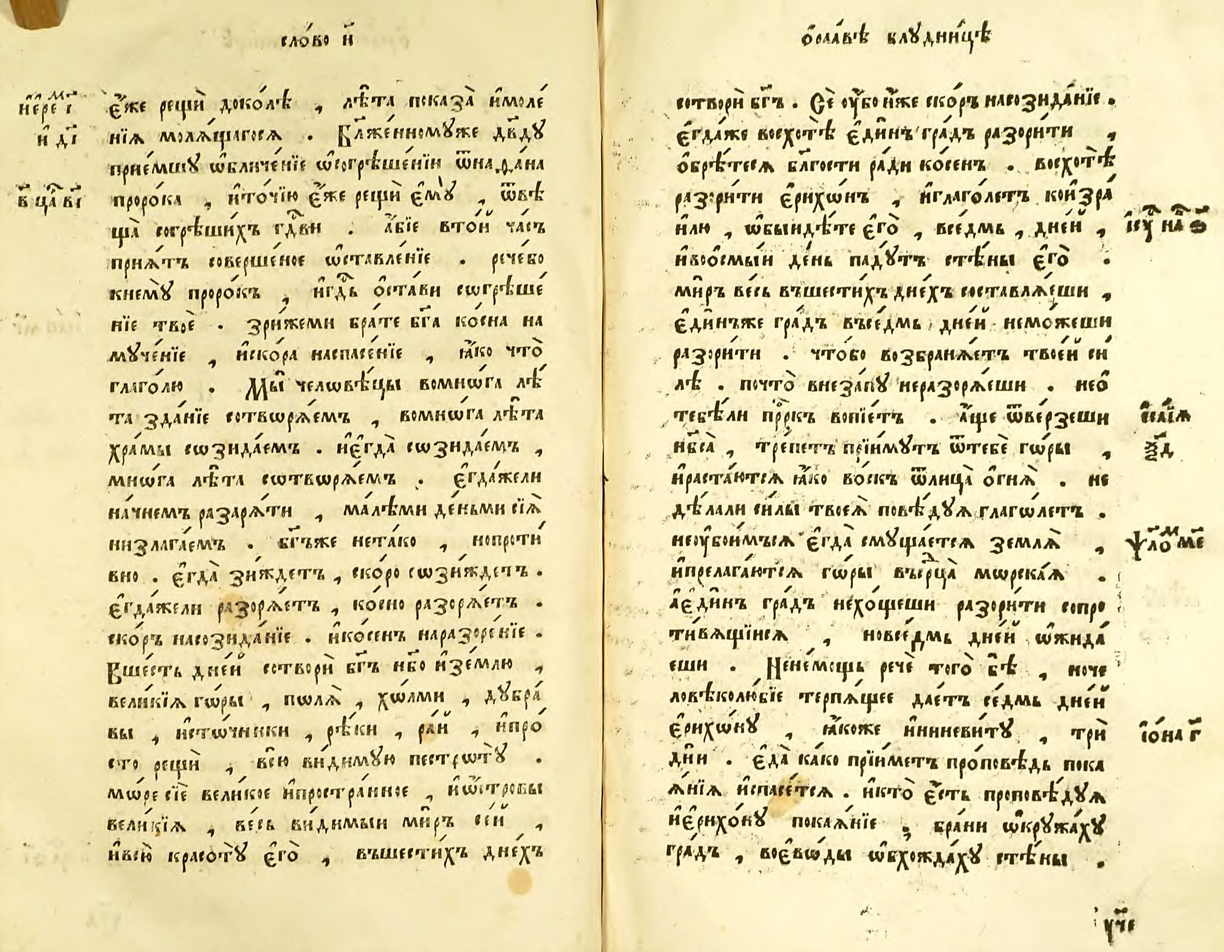 сло́во и҃
і҆ере м҃ г҃і
и҆ д҃і
в҃ ца҃ в҃і
є҆́же рещѝ доко́лѣ , лѣ̑та показа̀ и҆моле́
нїѧ молѧ́щагосѧ . Бл҃же́нномꙋже дв҃дꙋ
прїе́мшꙋ ѡ҆бличе́нїе ѡ҆согрѣше́нїи ѿнаѳа́на
проро́ка , и҆то́чїю є҆́же рещѝ є҆мꙋ̀ , ѿвѣ
ща̀ согрѣши́хъ гд҇ви . а҆́бїе вто́й ча́съ
прїѧ́тъ соверше́ное ѡ҆ставле́нїе . рече́бо
кнемꙋ̀ проро́къ , и҆гд҇ь ѡ҆ста́ви сѡгрѣше́
нїе твоѐ . зри́жеми бра́те бг҃а ко́сна на
мꙋче́нїе , и҆ско́ра наспасе́нїе , ꙗ҆́ко что̀
глаго́лю . Мы́ челѡвѣ́цы вомнѡ́га лѣ́
та зда́нїе сотвѡрѧ́емъ , вомнѡ́га лѣ̑та
хра́мы сѡзида́емъ . и҆є҆гда̀ сѡзида́емъ ,
мнѡ́га лѣ̑та сѡтвѡрѧ́емъ . є҆гда́жели
на́чнемъ разарѧ́ти , ма́лѣми де́ньми сїѧ̀
низлага́емъ . бг҃ъже нета́ко , нопроти́
вно . є҆гда̀ зи́ждетъ , ско́ро сѡзи́ждетъ .
є҆гда́жели разорѧ́етъ , ко́сно разорѧ́етъ .
ско́ръ насозида́нїе . и҆ко́сенъ наразоре́нїе .
Вше́сть дне́й сотворѝ бг҃ъ нб҃о и҆зе́млю ,
вели́кїѧ го́ры , пѡлѧ̀ , хо́лми , дꙋбра́
вы , и҆сто́чники , рѣ́ки , ра́й , и҆про́
сто рещѝ , всю̀ ви́димꙋю пестрѡтꙋ̀ .
мо́ре сїѐ вели́кое и҆простра́нное , и҆ѡ҆́стровы
вели́кїѧ , ве́сь ви́димыи ми́ръ се́й ,
и҆всю̀ красо́тꙋ є҆гѡ̀ , въшести́хъ дне́хъ
ѡ҆раа́вѣ блꙋдни́цѣ
сотворѝ бг҃ъ . Сѐ ᲂу҆̀бо и҆́же ско́ръ насозида́нїе .
є҆гда́же восхотѣ̀ є҆ди́нъ гра́дъ разори́ти ,
ѡ҆брѣ́тесѧ бл҃гости ра́ди ко́сенъ . восхотѣ̀
разори́ти є҆рихѡ́нъ , и҆глаго́летъ коі҆зра́
илю , ѡ҆быиди́те є҆гѡ̀ , все́дмь , дне́й ,
и҆воо́смыи де́нь падꙋ́тъ стѣ́ны є҆гѡ̀ .
ми́ръ ве́сь въшести́хъ дне́хъ составлѧ́еши ,
є҆ди́нъже гра́дъ въсе́дмь дне́й немо́жеши
разори́ти . что́бо возбранѧ́етъ твое́й си́
лѣ . почто̀ внеза́пꙋ неразорѧ́еши . нео҆
тебѣ́ли прⷪ҇ркъ вопїе́тъ . а҆́ще ѿве́рзеши
нб҃са̀ , тре́петъ прїи́мꙋтъ ѿтебѐ го́ры ,
и҆раста́ютсѧ ꙗ҆́ко во́скъ ѿлица̀ о҆гнѧ̀ . не
дѣ́лали си́лы твоеѧ̀ повѣ́дꙋѧ глаго́летъ .
неᲂу҆бои́мъсѧ є҆гда̀ смꙋща́етсѧ землѧ̀ ,
и҆прелага́ютсѧ го́ры въсрⷣца̀ мѡрска́ѧ .
а҆є҆ди́нъ гра́дъ нехо́щеши разори́ти сопро
ти́вѧщїисѧ , новсе́дмь дне́й ѡ҆жида́
еши . Не́немощь речѐ того̀ бѣ̀ , ноче
ловѣколю́бїе терпѧ́щее дае́тъ се́дмь дне́й
є҆рихѡ́нꙋ , ꙗ҆́коже ниневи́тꙋ , трѝ
дни̑ . є҆да̀ ка́ко прїи́метъ про́повѣдь пока
ѧ́нїѧ и҆спасе́тсѧ . и҆кто̀ є҆́сть проповѣ́дꙋѧ
и҆є҆рихо́нꙋ покаѧ́нїе , бра́ни ѡ҆крꙋжа́хꙋ
гра́дъ , воево́ды ѡ҆бхожда́хꙋ стѣ́ны .
і҆сꙋ҃ на҃ ѳ҃
и҆са́їѧ
ѯ҃д
ѱало́м ме҃
і҆ѡ́на г҃
ᲂу҆че